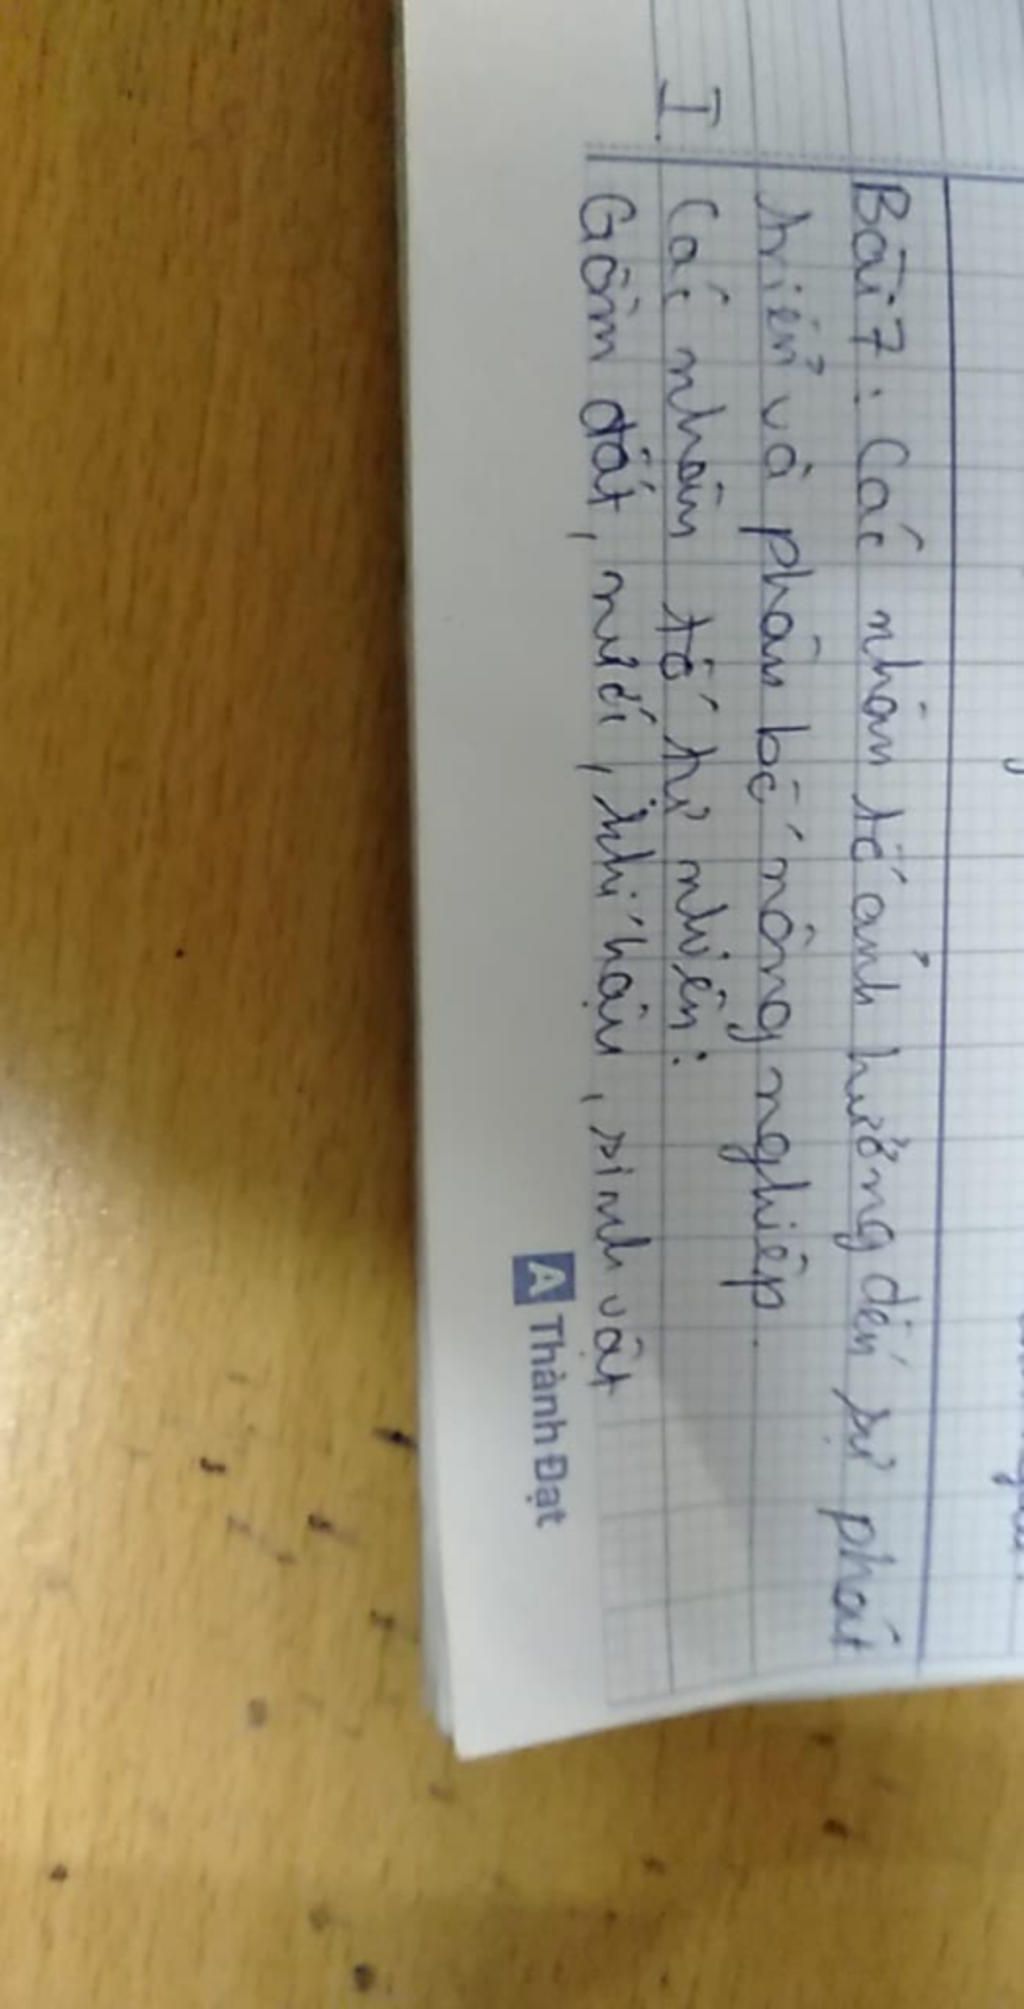 Bài 7: Các nhân tố ảnh hưởng đến sự phát
triển và phân bố nông nghiệp.
I. Các nhân tố tự nhiên:
Gồm đất, nước, khí hậu, sinh vật
A Thành Đạt